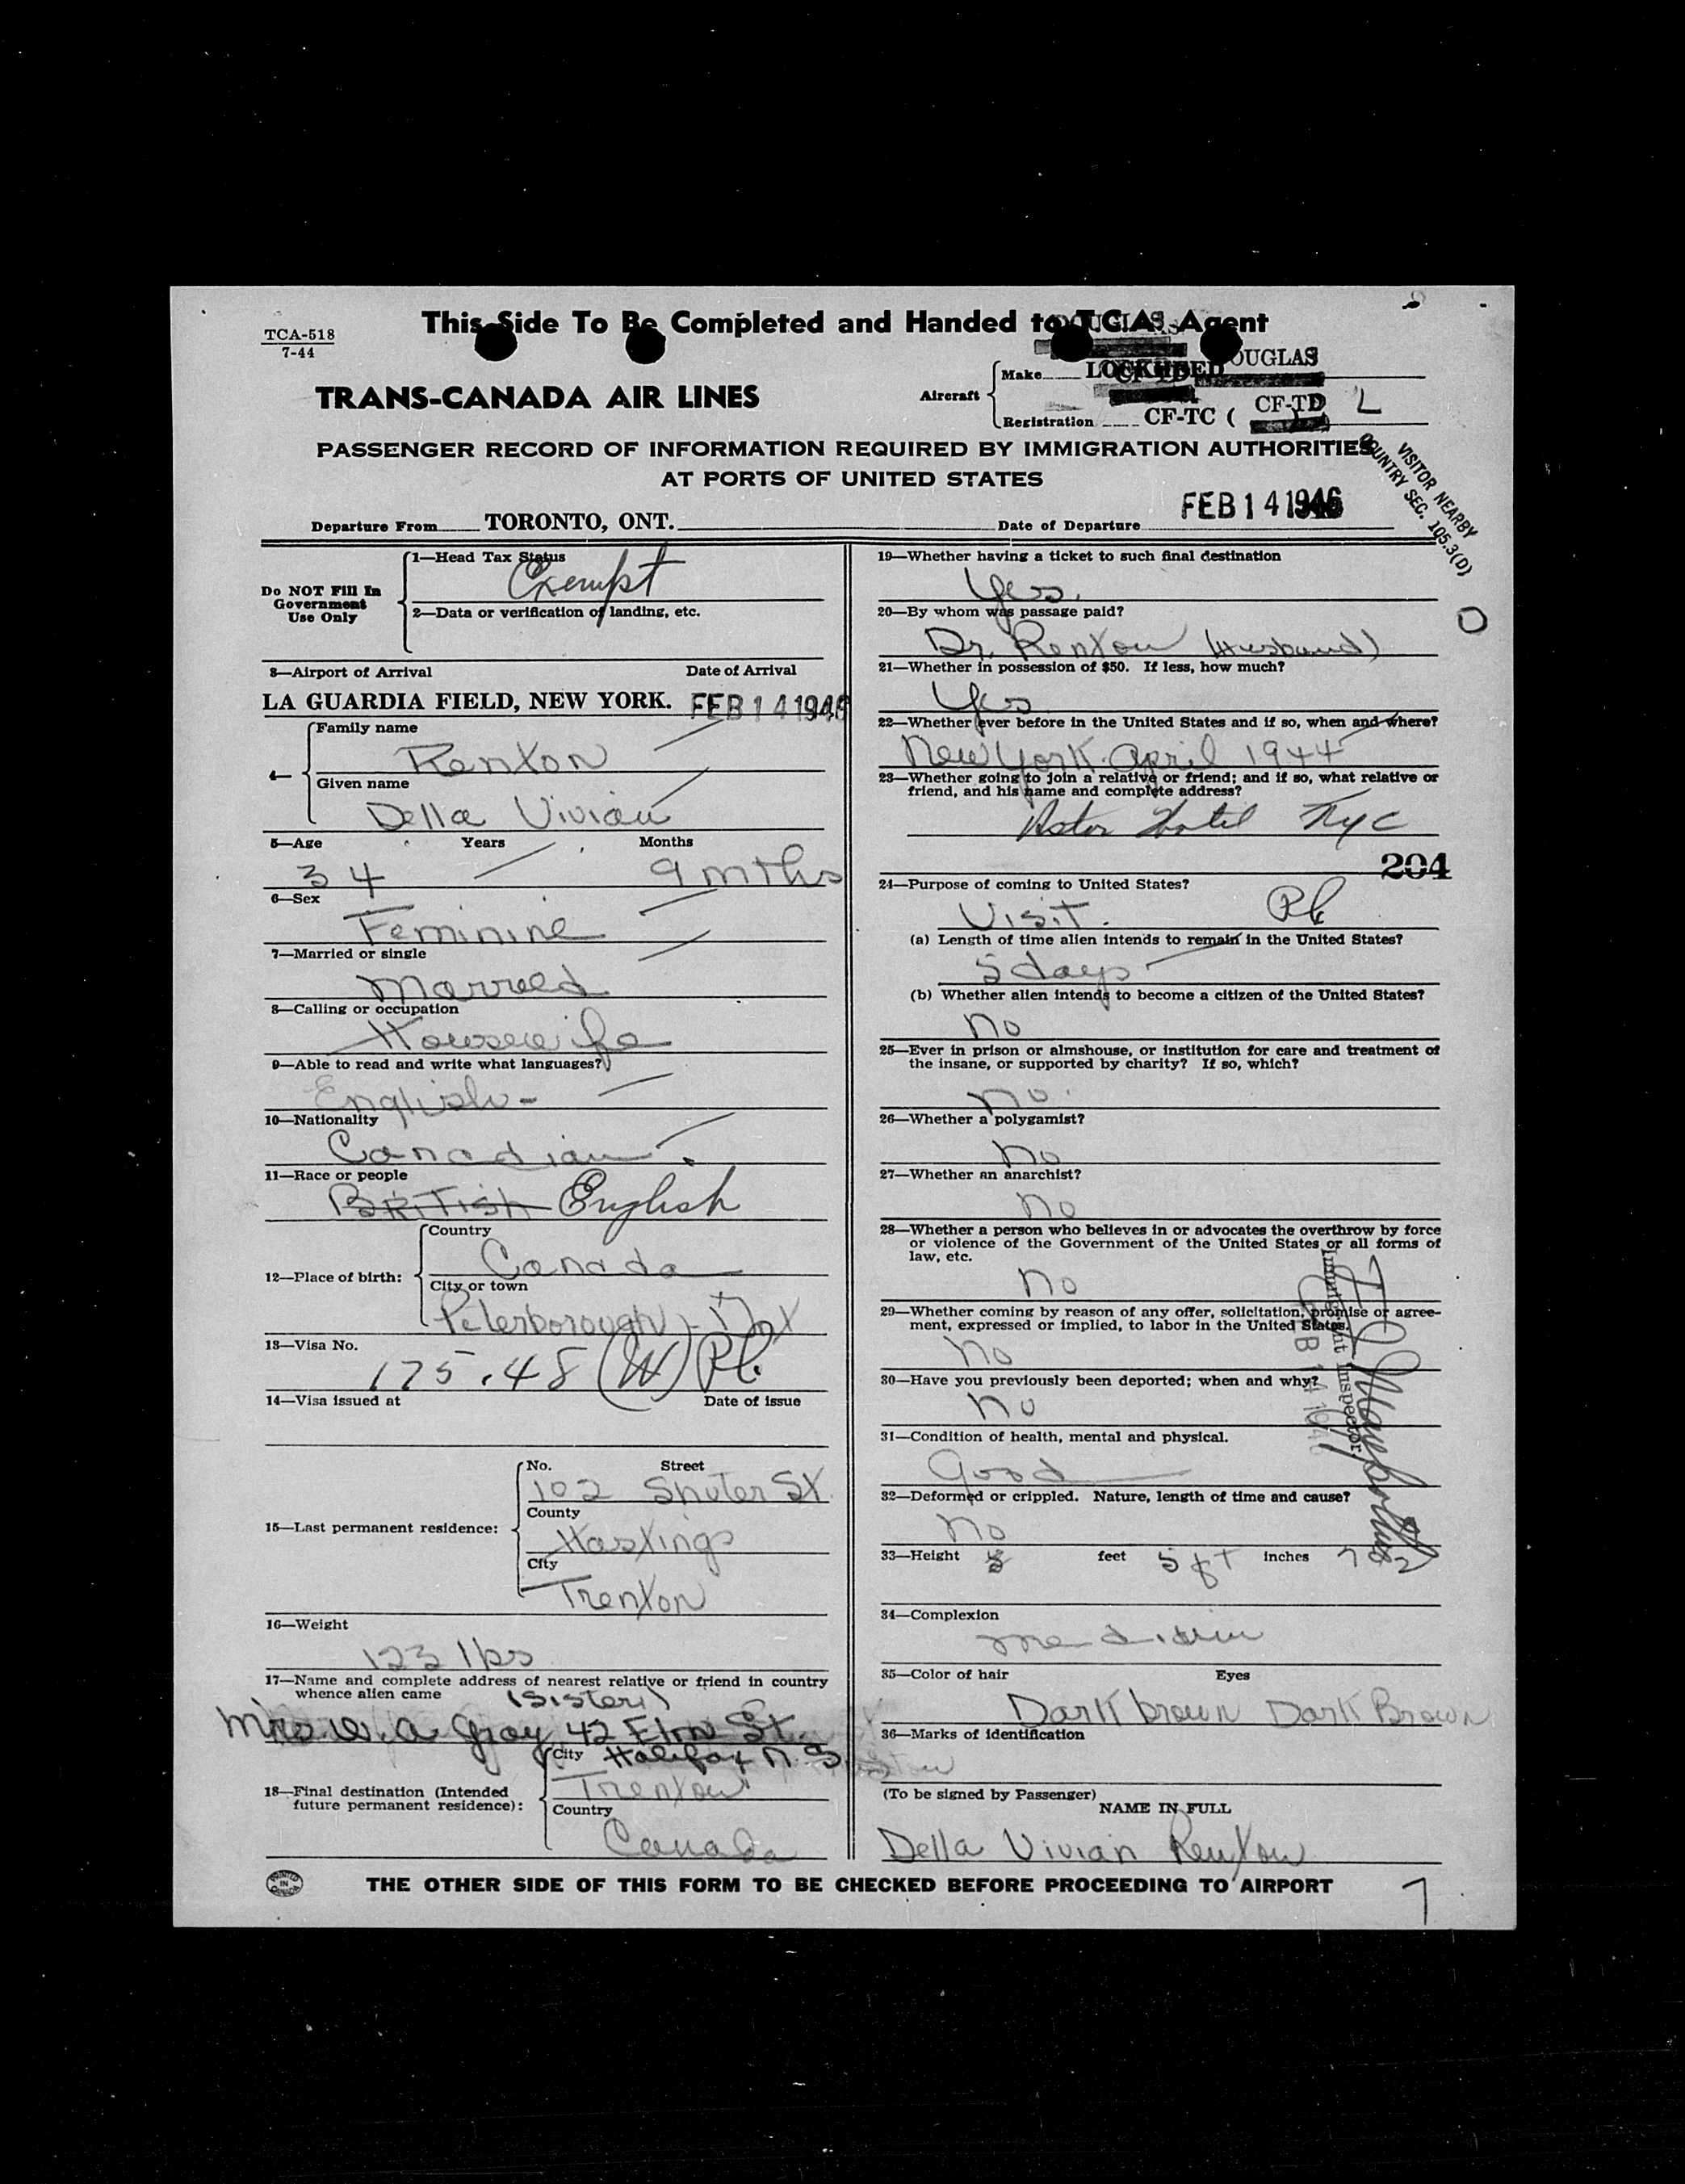 This Side To Be Completed and Handed to T.C.A. Agent
TCA-518
7-44
DOUGLAS
Make LOCKHEED DOUGLAS
TRANS-CANADA AIR LINES
Aircraft
Registration CF-TC ( CF-TD L
PASSENGER RECORD OF INFORMATION REQUIRED BY IMMIGRATION AUTHORITIES
AT PORTS OF UNITED STATES
VISITOR NEARBY
COUNTRY SEC. 105.3(D)
Departure From TORONTO, ONT. Date of Departure FEB 14 1946
Do NOT Fill In
Government
Use Only
1—Head Tax Status
Exempt
2—Data or verification of landing, etc.
3—Airport of Arrival Date of Arrival
LA GUARDIA FIELD, NEW YORK. FEB 14 1946
4—
Family name
Renton
Given name
Della Vivian
5—Age Years Months
34 9 mths
6—Sex
Feminine
7—Married or single
Married
8—Calling or occupation
Housewife
9—Able to read and write what languages?
English -
10—Nationality
Canadian.
11—Race or people
British English
12—Place of birth:
Country
Canada
City or town
Peterborough - Ont
13—Visa No.
175.48 (W) Pl.
14—Visa issued at Date of issue
15—Last permanent residence:
No. Street
102 Shuter St.
County
Hastings
City
Trenton
16—Weight
123 lbs
17—Name and complete address of nearest relative or friend in country
whence alien came (Sister)
Mrs. W. A. Gray 42 Elm St.
Halifax N.S.
18—Final destination (Intended
future permanent residence):
City
Trenton
Country
Canada
19—Whether having a ticket to such final destination
Yes.
20—By whom was passage paid?
Dr. Renton (Husband)
21—Whether in possession of $50. If less, how much?
Yes
22—Whether ever before in the United States and if so, when and where?
New York. April 1944
23—Whether going to join a relative or friend; and if so, what relative or
friend, and his name and complete address?
Astor Hotel NYC
204
24—Purpose of coming to United States?
Visit. Pl
(a) Length of time alien intends to remain in the United States?
5 days
(b) Whether alien intends to become a citizen of the United States?
no
25—Ever in prison or almshouse, or institution for care and treatment of
the insane, or supported by charity? If so, which?
no.
26—Whether a polygamist?
no
27—Whether an anarchist?
no
28—Whether a person who believes in or advocates the overthrow by force
or violence of the Government of the United States or all forms of
law, etc.
no
29—Whether coming by reason of any offer, solicitation, promise or agree-
ment, expressed or implied, to labor in the United States.
no
30—Have you previously been deported; when and why?
no
FEB 14 1946
Immigrant Inspector
31—Condition of health, mental and physical.
Good
32—Deformed or crippled. Nature, length of time and cause?
no
33—Height feet 5 ft inches 7 1/2
34—Complexion
medium
35—Color of hair Eyes
Dark brown Dark Brown
36—Marks of identification
(To be signed by Passenger)
NAME IN FULL
Della Vivian Renton
PRINTED IN CANADA
THE OTHER SIDE OF THIS FORM TO BE CHECKED BEFORE PROCEEDING TO AIRPORT
7